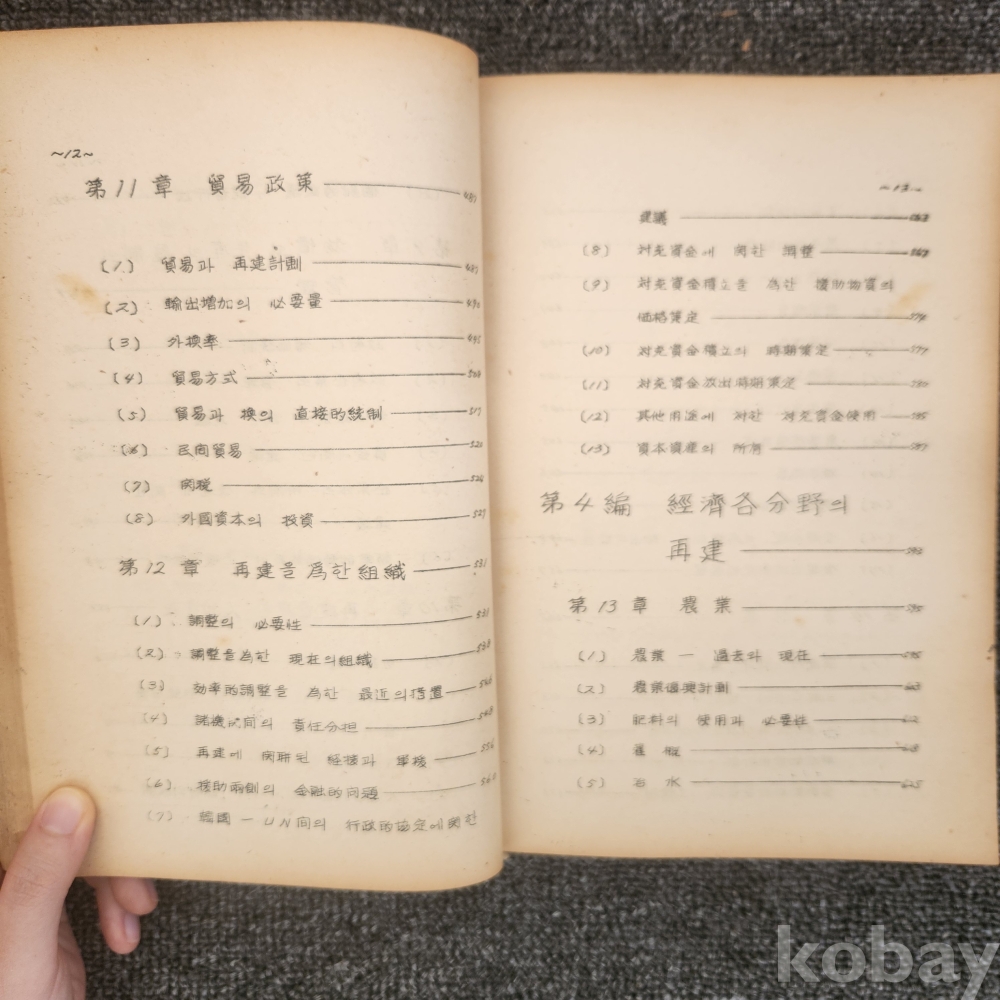 ~12~
第11章 貿易政策
(1) 貿易과 再建計劃
(2) 輸出增加의 必要量
(3) 外換率
(4) 貿易方式
(5) 貿易과 換의 直接的統制 517
(6) 民间貿易
(7) 関税
(8) 外國資本의 投資 527
第12章 再建을 為한 組織 531
(1) 調整의 必要性
(2) 調整을 為한 現在의 組織
(3) 効率的調整을 為한 最近의 措置
(4) 諸機関间의 責任分担
(5) 再建에 関聯된 経援과 軍援
(6) 援助両側의 金融的问題
(7) 韓國 — UN间의 行政的協定에 関한
~13~
建議
(8) 対充資金에 関한 調整
(9) 対充資金積立을 為한 援助物資의
価格策定 574
(10) 対充資金積立의 時期策定 577
(11) 対充資金放出時期策定
(12) 其他用途에 対한 対充資金使用
(13) 資本資産의 所有
第4編 經濟各分野의
再建
第13章 農業
(1) 農業 — 過去와 現在
(2) 農業復興計劃
(3) 肥料의 使用과 必要性
(4) 灌漑
(5) 625
kobay